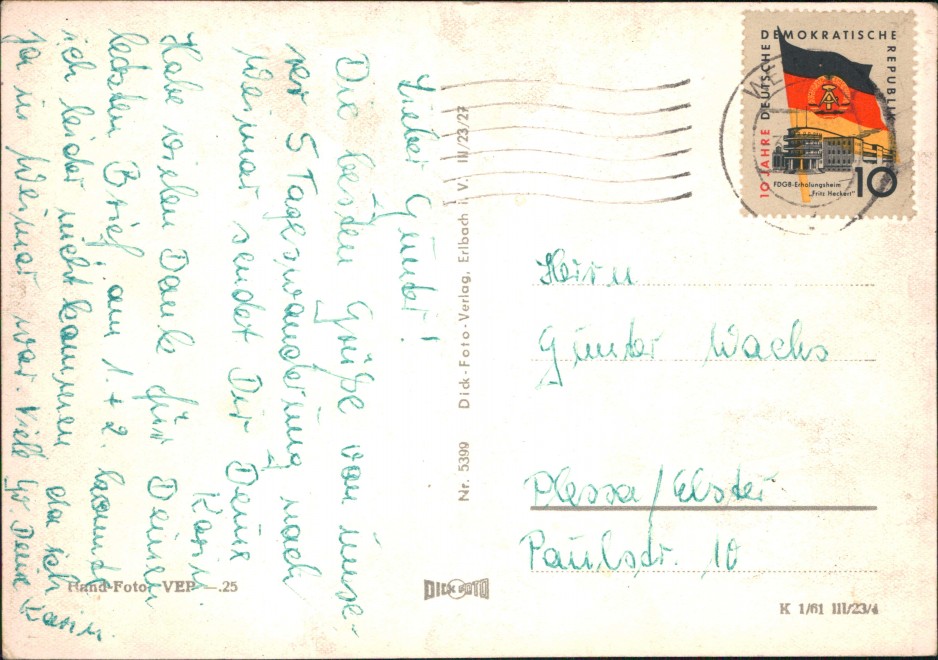 Lieber Günter!
Die besten Grüße von unse-
rer 5 Tageswanderung nach
Weimar sendet Dir Deine
Karin
Habe vielen Dank für Deinen
letzten Brief, am 1. + 2. konnte
ich leider nicht kommen da ich
ja in Weimar war. Viele Gr. Deine Karin.
Hand-Foto VEP —.25
Nr. 5399 Dick-Foto-Verlag, Erlbach i. V. III/23/27
DICK FOTO
10 JAHRE DEUTSCHE DEMOKRATISCHE REPUBLIK
FDGB-Erholungsheim
„Fritz Heckert"
10
Herrn
Günter Wachs
Plessa/Elster
Paulstr. 10
K 1/61 III/23/4